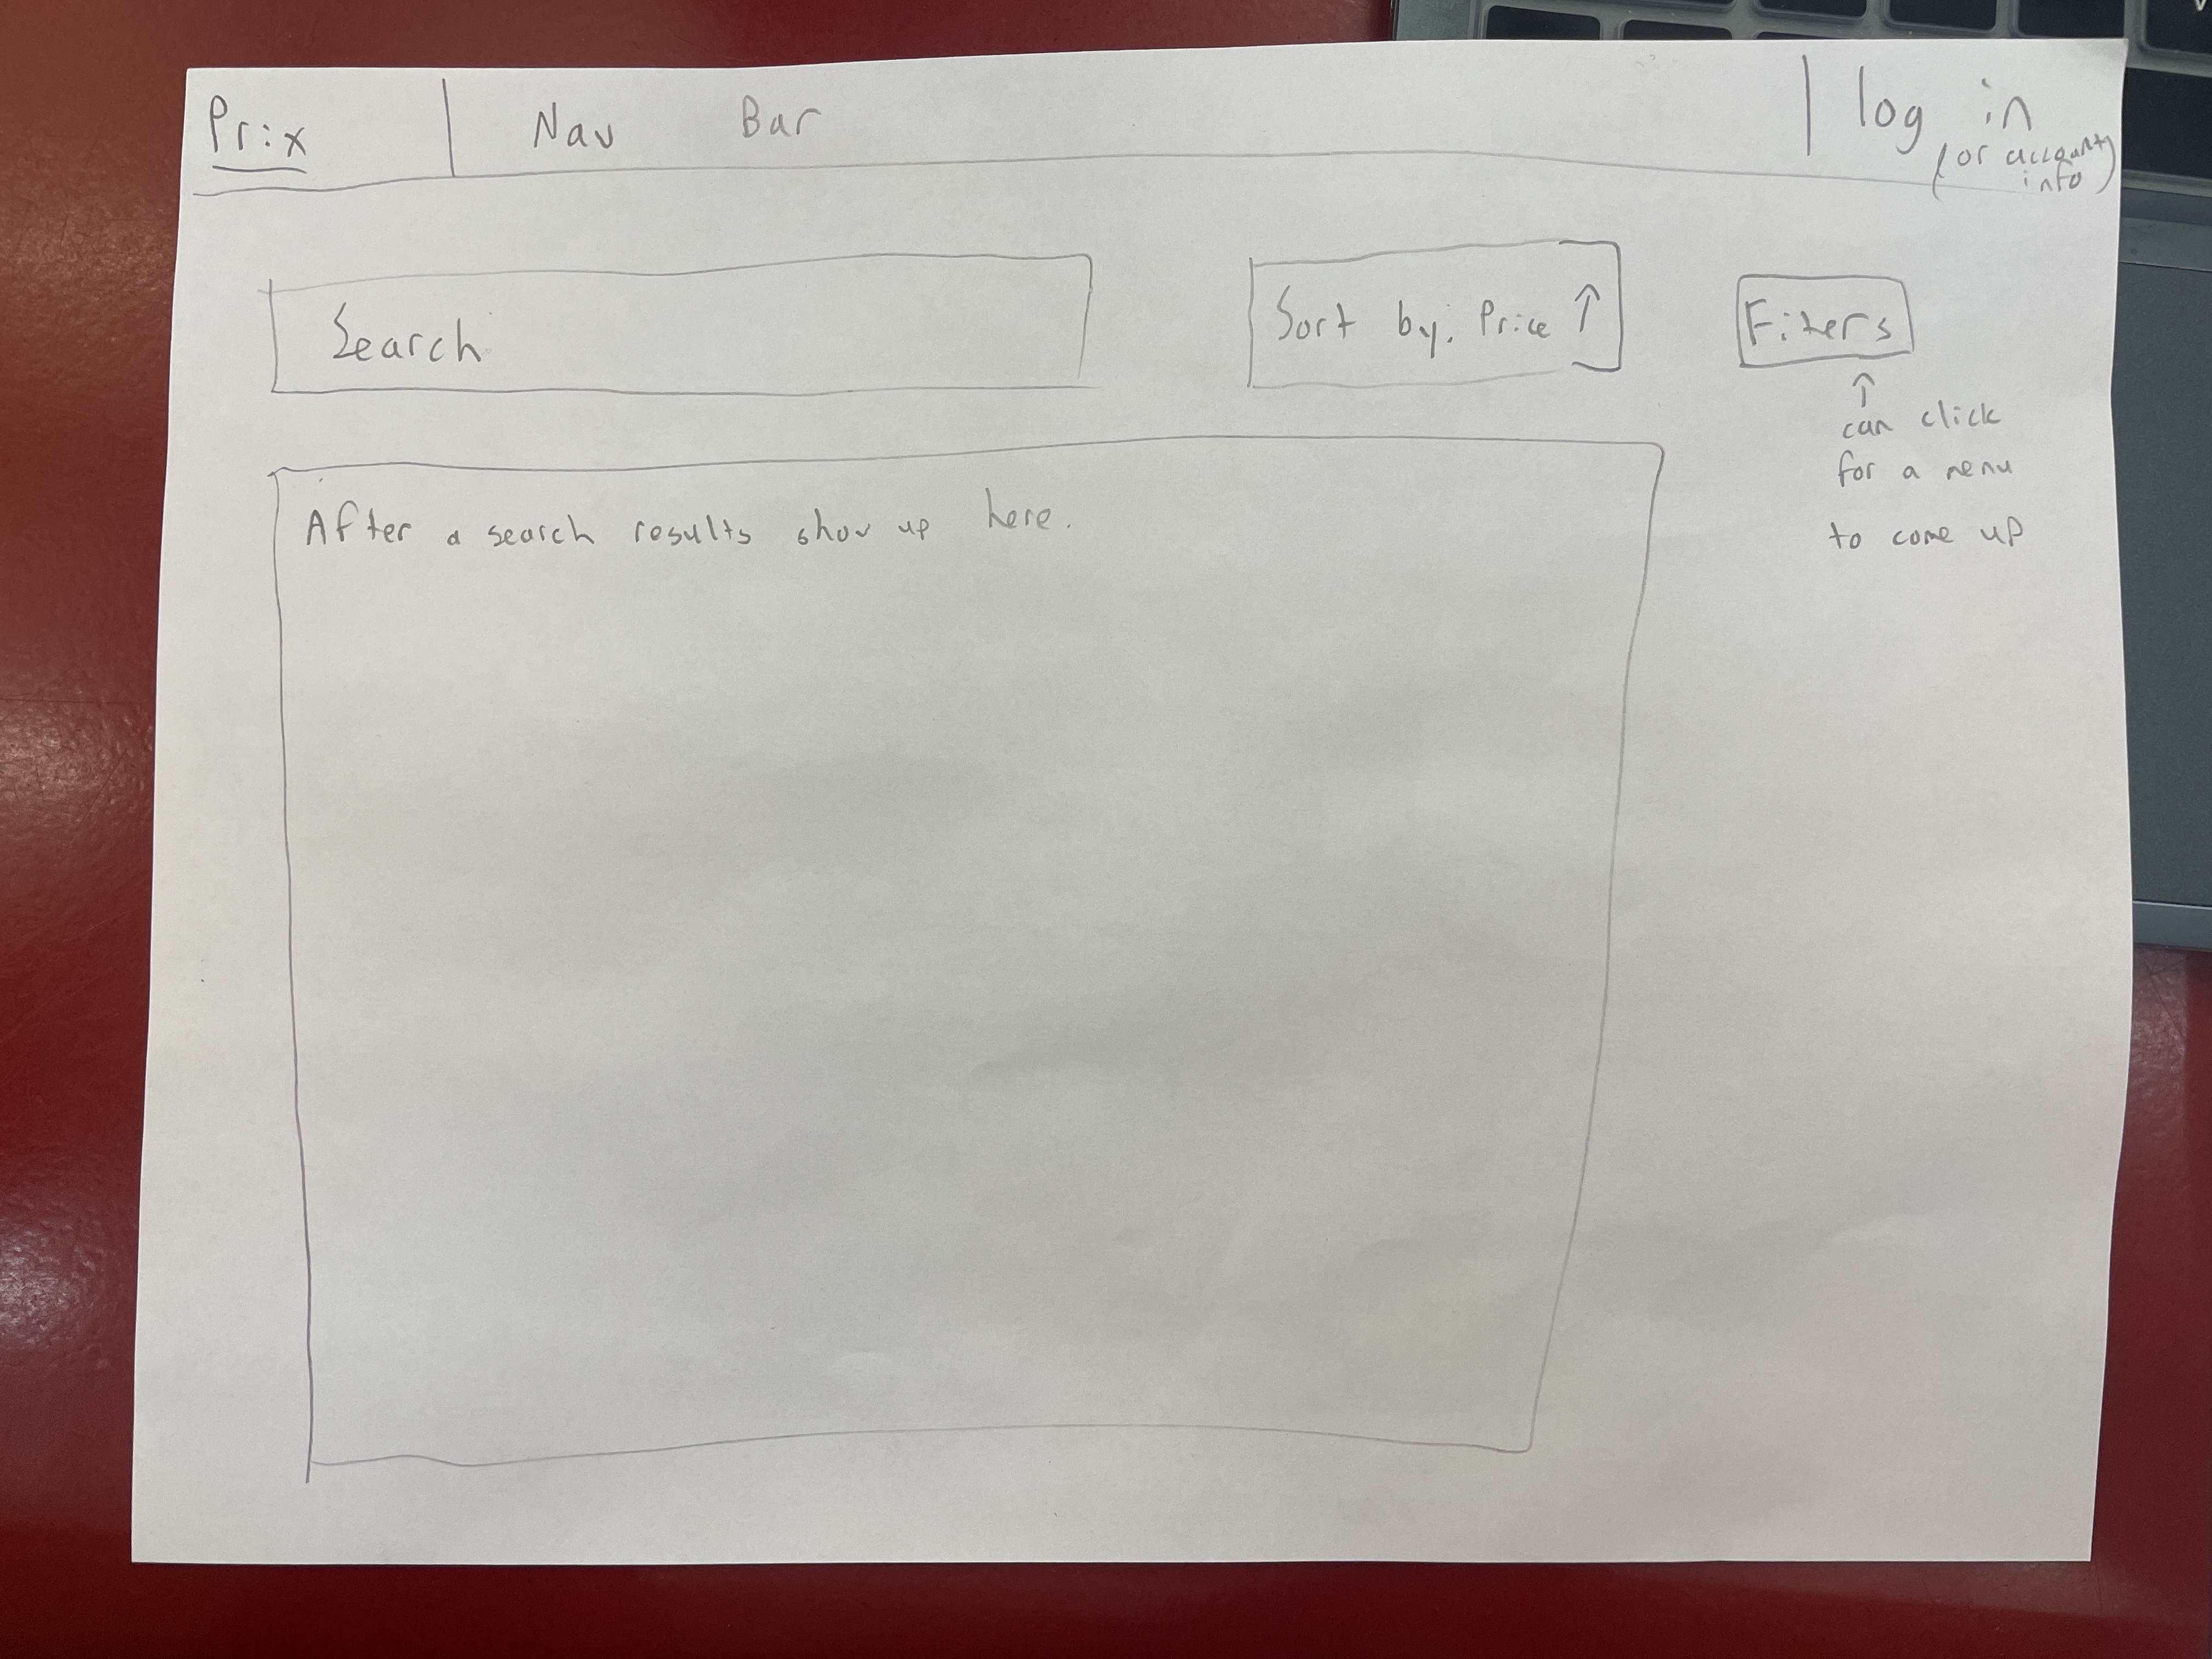 Prix
Nav Bar
log in
(or account
info)
Search
Sort by: Price ↑
Filters
↑
can click
for a menu
to come up
After a search results show up here.